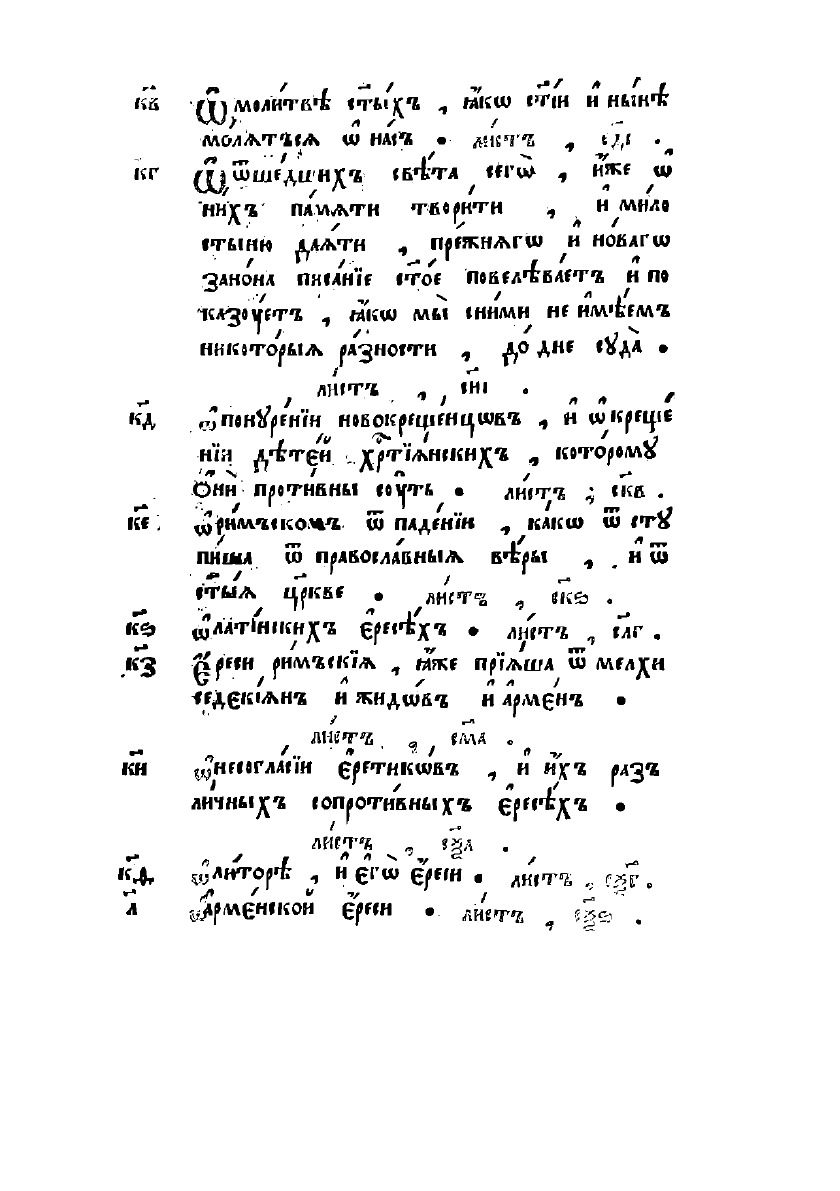 к҃в Ѿ мѡли́твѣ ст҃ы́хъ , ꙗ҆́кѡ ст҃і́и и҆ ны́нѣ
мо́лѧтъсѧ ѡ҆ на́съ • ли́стъ ,
к҃г Ѡ҆ ѿше́дшихъ свѣ́та сегѡ̀ , и҆́же ѡ҆
ни́хъ па́мѧти твори́ти , и҆ мило
стыню даѧ́ти , пре́жнѧгѡ и҆ но́вагѡ
зако́на писа́нїе ст҃о́е повелѣва́етъ и҆ по
казꙋ́етъ , ꙗ҆́кѡ мы̀ сни́ми не и҆мѣ́емъ
никото́рыѧ ра́зности , до́ дне сꙋда̀ •
ли́стъ , с҃иі .
к҃д ѡ҆ понꙋре́нїи новокреще́нцѡвъ , и҆ ѡ҆ креще́
нїи дѣте́й хрⷭ҇тїѧ́нскихъ , кото́ромꙋ
Ѻ҆нѝ проти́вны сꙋ́ть • ли́стъ , с҃кв .
к҃є ѡ҆ ри́мъскомъ ѿ паде́нїи , ка́кѡ ѿ стꙋ
пи́ша ѿ правосла́вныѧ вѣ́ры , и҆ ѿ
ст҃ы́ѧ цр҃кве • ли́стъ , с҃кѕ .
к҃ѕ ѡ҆ лати́нскихъ є҆́ресѣхъ • ли́стъ , с҃лг .
к҃з Є҆́реси ри́мъскїѧ , ꙗ҆́же прїѧ́ша ѿ мелхи
седекїѧ́нъ и҆ жидѡ́въ и҆ а҆рме́нъ •
ли́стъ , с҃ма .
к҃и ѡ҆ несогла́сїи є҆рети́кѡвъ , и҆ и҆́хъ раз
ли́чныхъ сопроти́вныхъ є҆́ресѣхъ •
ли́стъ , с҃ѯа .
к҃ѳ ѡ҆ лю́торѣ , и҆ є҆гѡ̀ є҆́реси • ли́стъ , с҃ѯг .
л҃ ѡ҆ а҆рме́нской є҆́реси • ли́стъ , с҃ѯѕ .